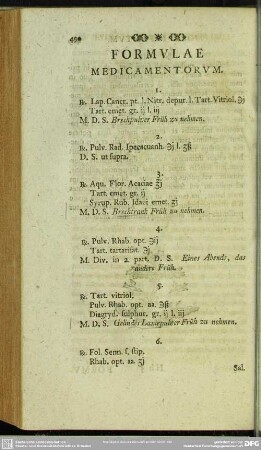 FORMVLAE
MEDICAMENTORVM.
1.
℞. Lap. Cancr. pt. l. Nitr. depur. l. Tart. Vitriol. ℈j
Tart. emet. gr. ij l. iij
M. D. S. Brechpulver Früh zu nehmen.
2.
℞. Pulv. Rad. Ipecacuanh. ℈j l. ʒß
D. S. ut supra.
3.
℞. Aqu. Flor. Acaciae ʒj
Tart. emet. gr. ij
Syrup. Rob. Idaei emet. ʒj
M. D. S. Brechtrank Früh zu nehmen.
4.
℞. Pulv. Rhab. opt. ℈ij
Tart. tartarisat. ℈j.
M. Div. in 2. part. D. S. Eines Abends, das
andere Früh.
5.
℞. Tart. vitriol.
Pulv. Rhab. opt. aa. ℈ß
Diagryd. sulphur. gr. ij l. iij
M. D. S. Gelindes Laxierpulver Früh zu nehmen.
6.
℞. Fol. Senn. s. stip.
Rhab. opt. aa. ʒj
Sal.